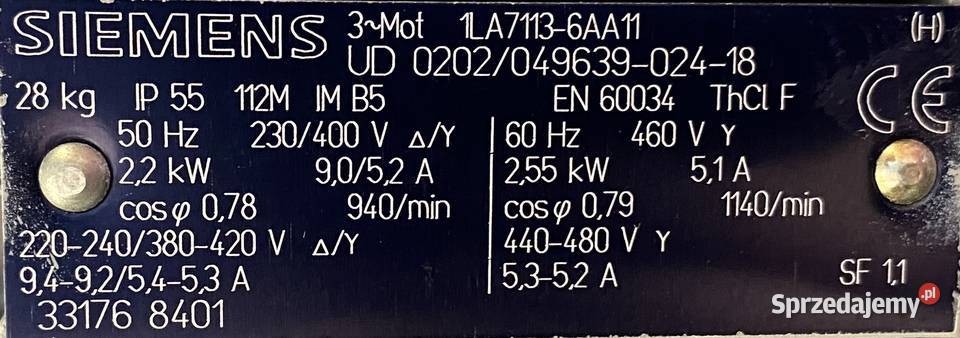 SIEMENS 3~Mot 1LA7113-6AA11 (H)
UD 0202/049639-024-18
28 kg IP 55 112M IM B5 EN 60034 ThCl F CE
50 Hz 230/400 V Δ/Y 60 Hz 460 V Y
2,2 kW 9,0/5,2 A 2,55 kW 5,1 A
cosφ 0,78 940/min cosφ 0,79 1140/min
220-240/380-420 V Δ/Y 440-480 V Y
9,4-9,2/5,4-5,3 A 5,3-5,2 A SF 1,1
33176 8401
Sprzedajemy.pl